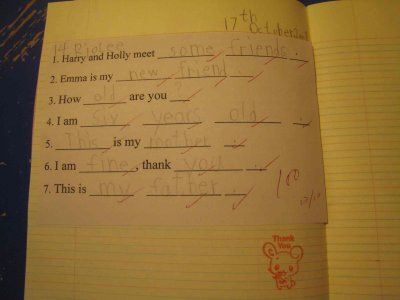 17th
October
1. Harry and Holly meet some friends.
2. Emma is my new friend.
3. How old are you ?
4. I am six years old .
5. This is my mother .
6. I am fine, thank you .
7. This is my father .
100
Thank
You